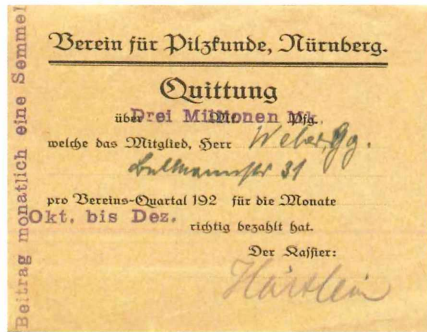 Beitrag monatlich eine Semmel
Verein für Pilzkunde, Nürnberg.
Quittung
über Drei Millionen Mk. Pfg.
welche das Mitglied, Herr Weber, Gg.
31
pro Vereins-Quartal 192 für die Monate
Okt. bis Dez. richtig bezahlt hat.
Der Kassier:
Härtlein